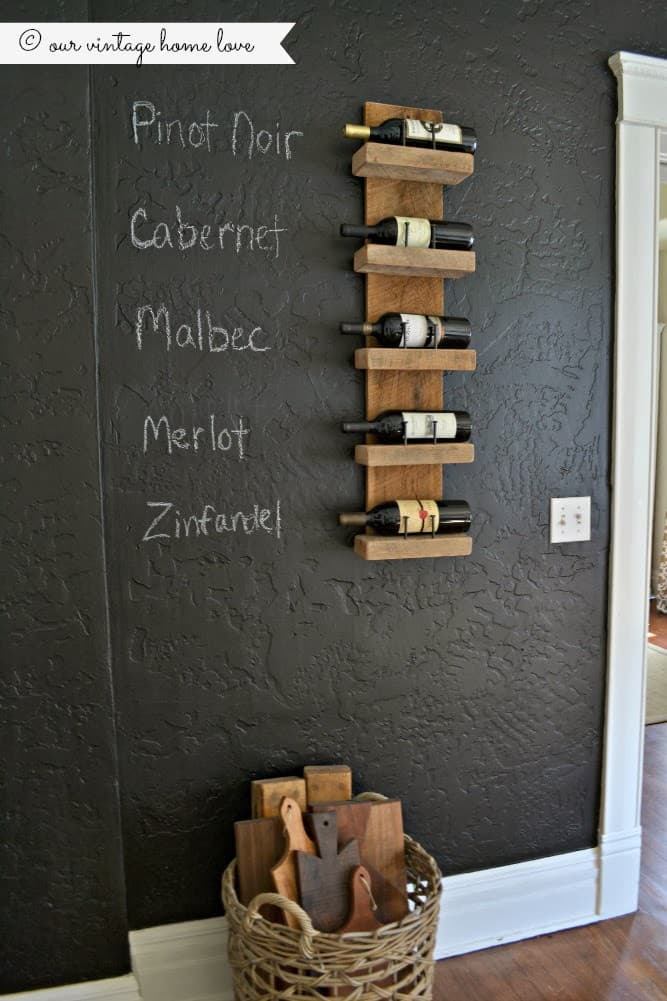 © our vintage home love
Pinot Noir
Cabernet
Malbec
Merlot
Zinfandel